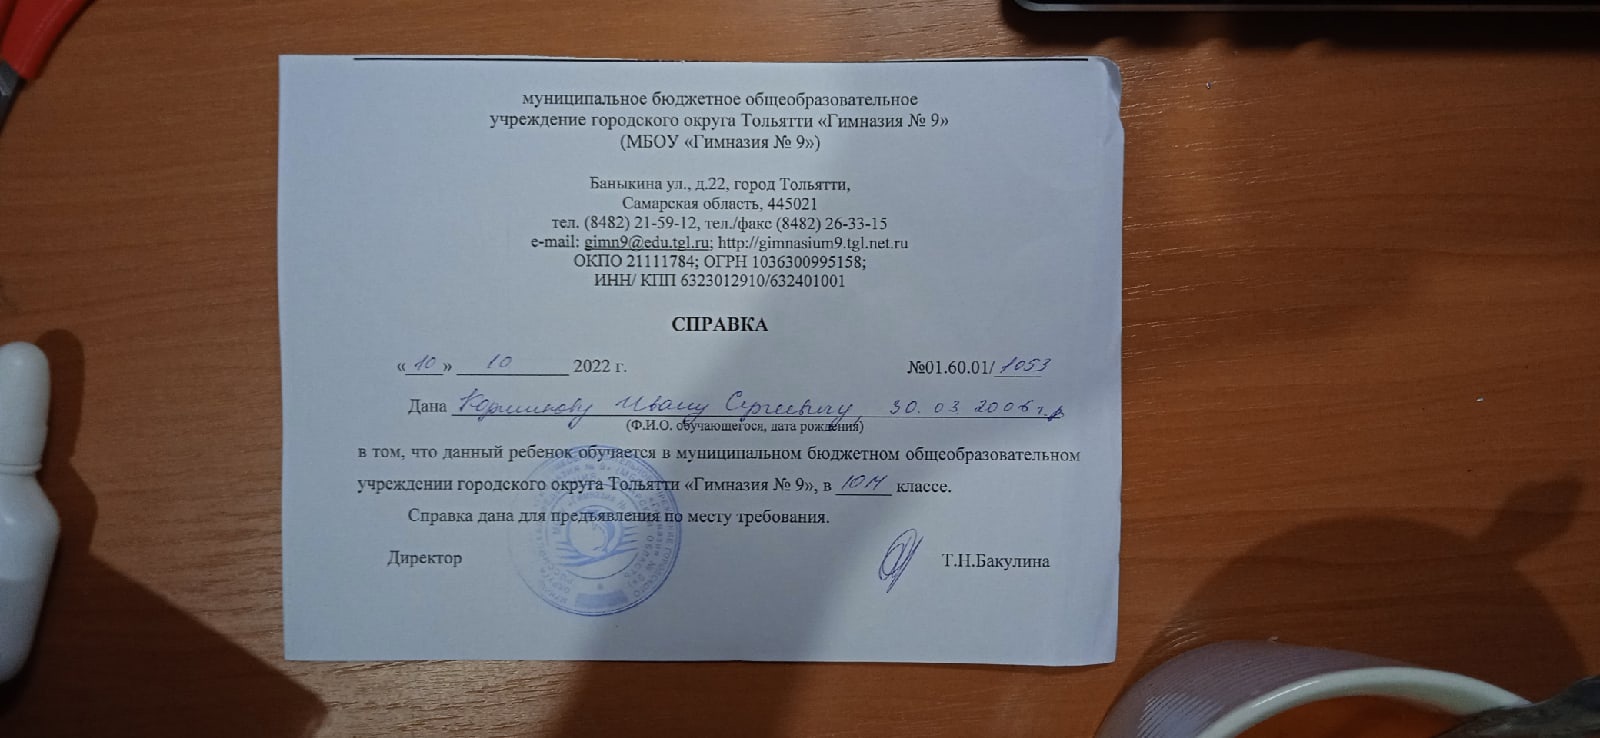 муниципальное бюджетное общеобразовательное
учреждение городского округа Тольятти «Гимназия № 9»
(МБОУ «Гимназия № 9»)
Баныкина ул., д.22, город Тольятти,
Самарская область, 445021
тел. (8482) 21-59-12, тел./факс (8482) 26-33-15
e-mail: gimn9@edu.tgl.ru; http://gimnasium9.tgl.net.ru
ОКПО 21111784; ОГРН 1036300995158;
ИНН/ КПП 6323012910/632401001
СПРАВКА
«10» 10 2022 г. №01.60.01/1053
Дана Ивану Сергеевичу, 30.03.2006 г.р
(Ф.И.О. обучающегося, дата рождения)
в том, что данный ребенок обучается в муниципальном бюджетном общеобразовательном
учреждении городского округа Тольятти «Гимназия № 9», в 10М классе.
Справка дана для предъявления по месту требования.
Директор Т.Н.Бакулина